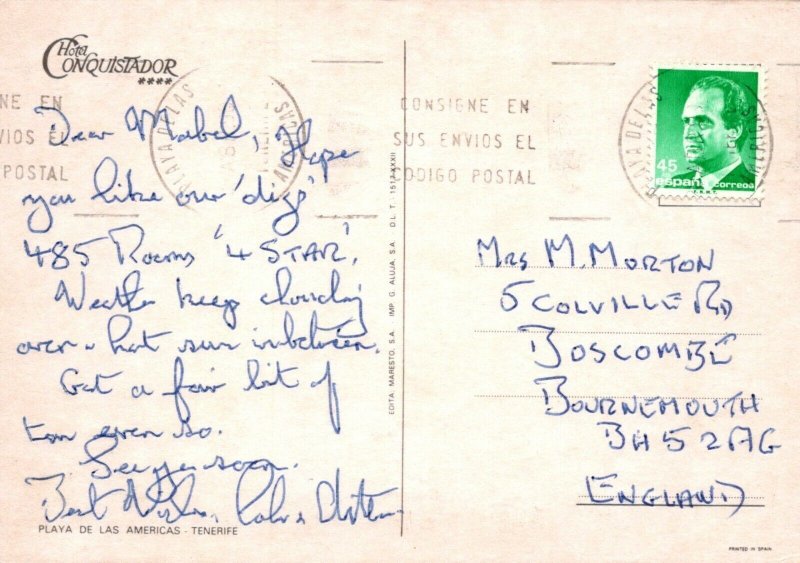 Hotel
CONQUISTADOR
****
NE EN
VIOS EL
POSTAL
PLAYA DE LAS
Dear Mabel, Hope
you like our 'digs'
485 Rooms '4 STAR'.
Weather keeps clouding
over - hot sun inbetween.
Got a fair bit of
tan even so.
See you soon.
Best Wishes,
PLAYA DE LAS AMERICAS - TENERIFE
EDITA. MARESTO, S.A. IMP. G. ALUJA, S.A. D.L. T. 1517-XXXII
CONSIGNE EN
SUS ENVIOS EL
CODIGO POSTAL
PLAYA DE LAS
45
españa correos
F.N.M.T.
Mrs M. MORTON
5 COLVILLE RD
BOSCOMBE
BOURNEMOUTH
BH5 2AG
ENGLAND
PRINTED IN SPAIN